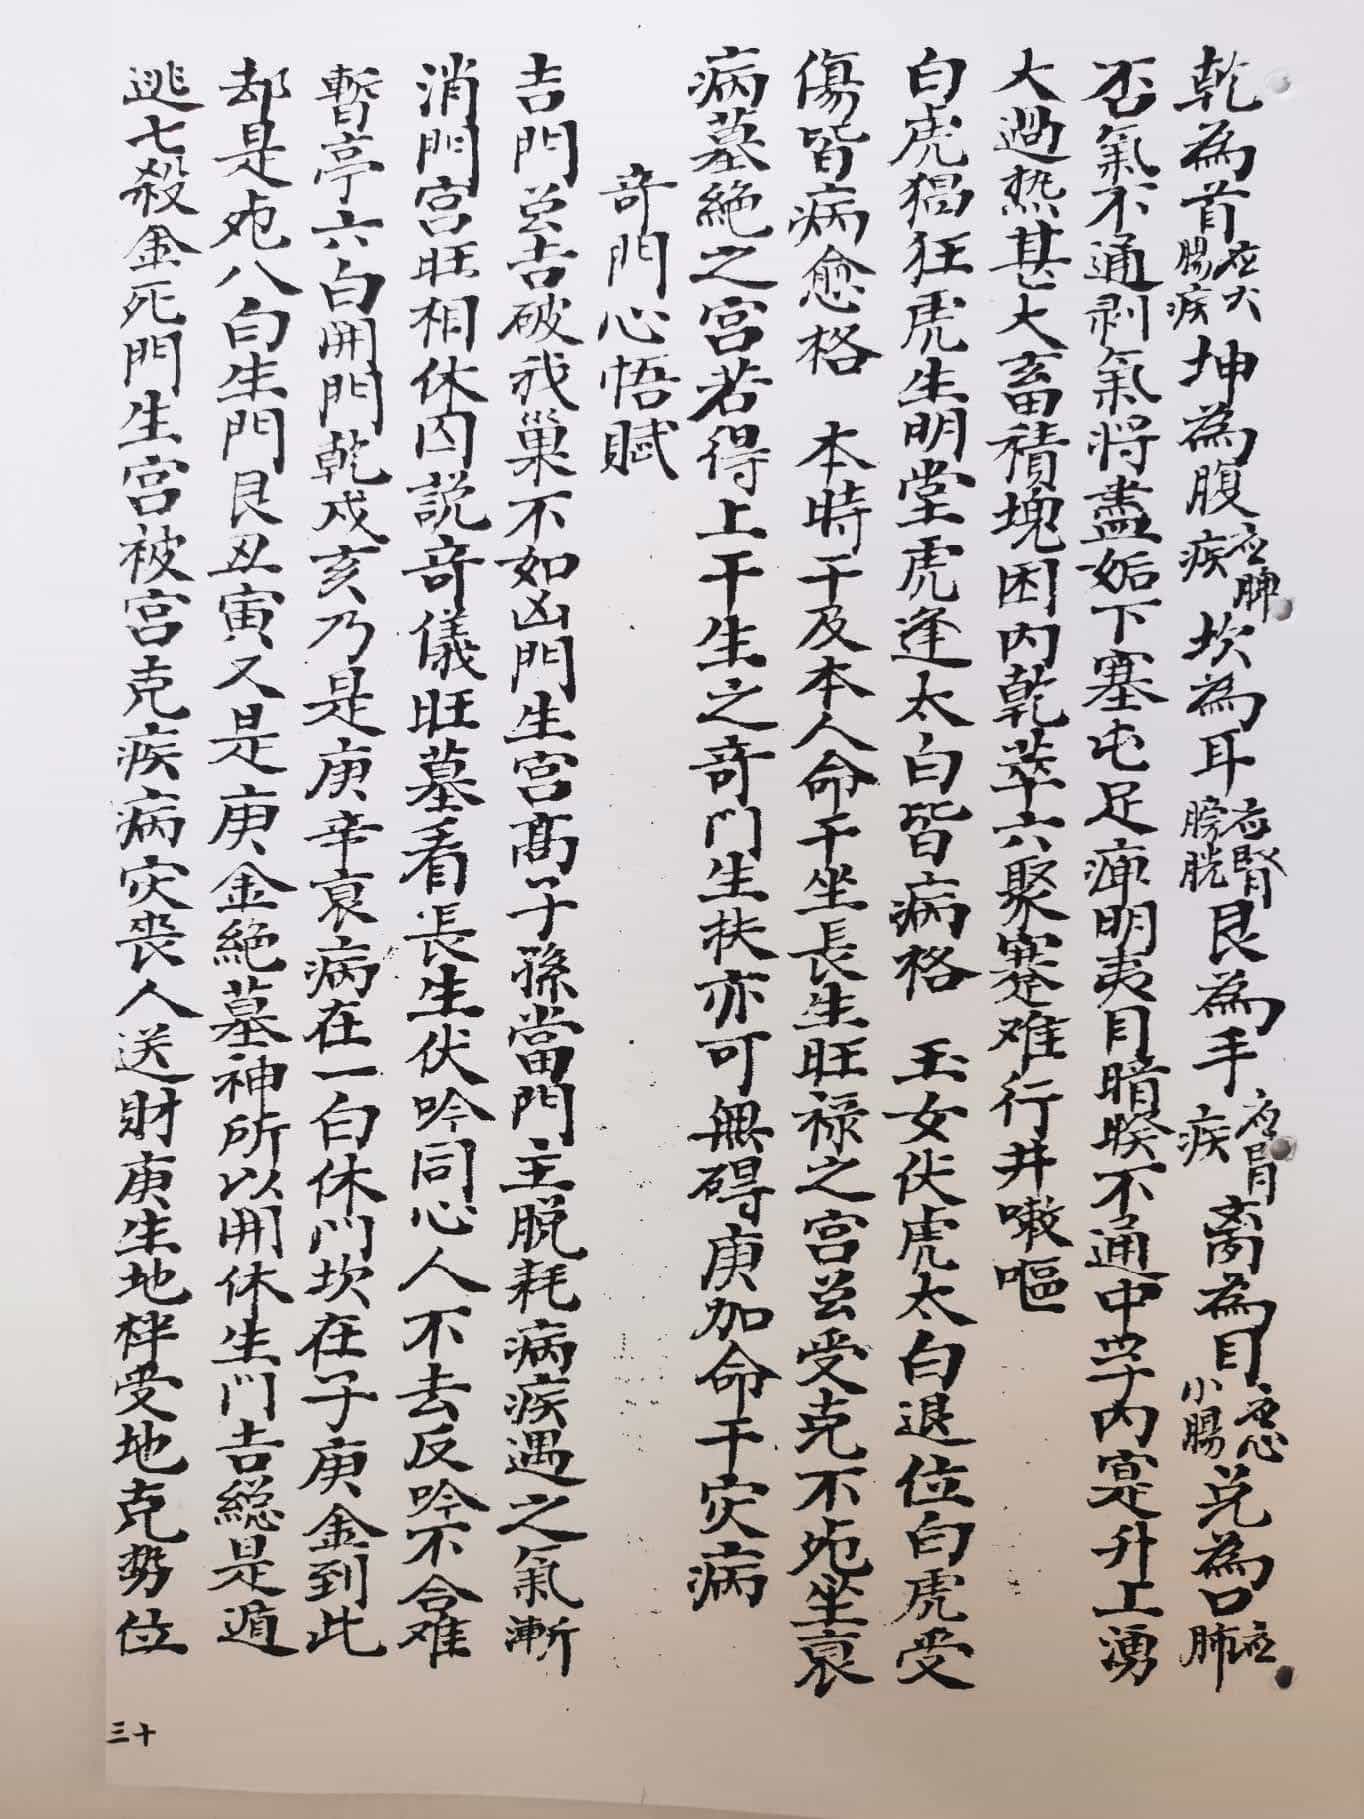 乾為首應大腸疾坤為腹應脾疾坎為耳應腎膀胱艮為手應胃疾离為目應心小腸兑為口應肺
否氣不通剥氣将盡姤下塞屯足痺明夷目暗睽不通中孚内寔升上湧
大過热甚大畜積塊困内乾萃六聚蹇难行井嗽嘔
白虎猖狂虎生明堂虎逢太白皆病格　玉女伏虎太白退位白虎受
傷皆病愈格　本時干及本人命干坐長生旺禄之宫並受克不她坐衰
病墓絶之宫若得上干生之竒门生扶亦可無碍庚加命干灾病
竒門心悟賦
吉門並吉破我巢不如凶門生宫高子孫當門主脱耗病疾遇之氣漸
消門宫旺相休囚説竒儀旺墓看長生伏吟同心人不去反吟不合难
暫亭六白開門乾戍亥乃是庚辛衰病在一白休门坎在子庚金到此
却是她八白生門艮丑寅又是庚金絶墓神所以開休生门吉総是遁
逃七殺金死門生宫被宫克疾病灾丧人送財庚生地梓受地克势位
三十